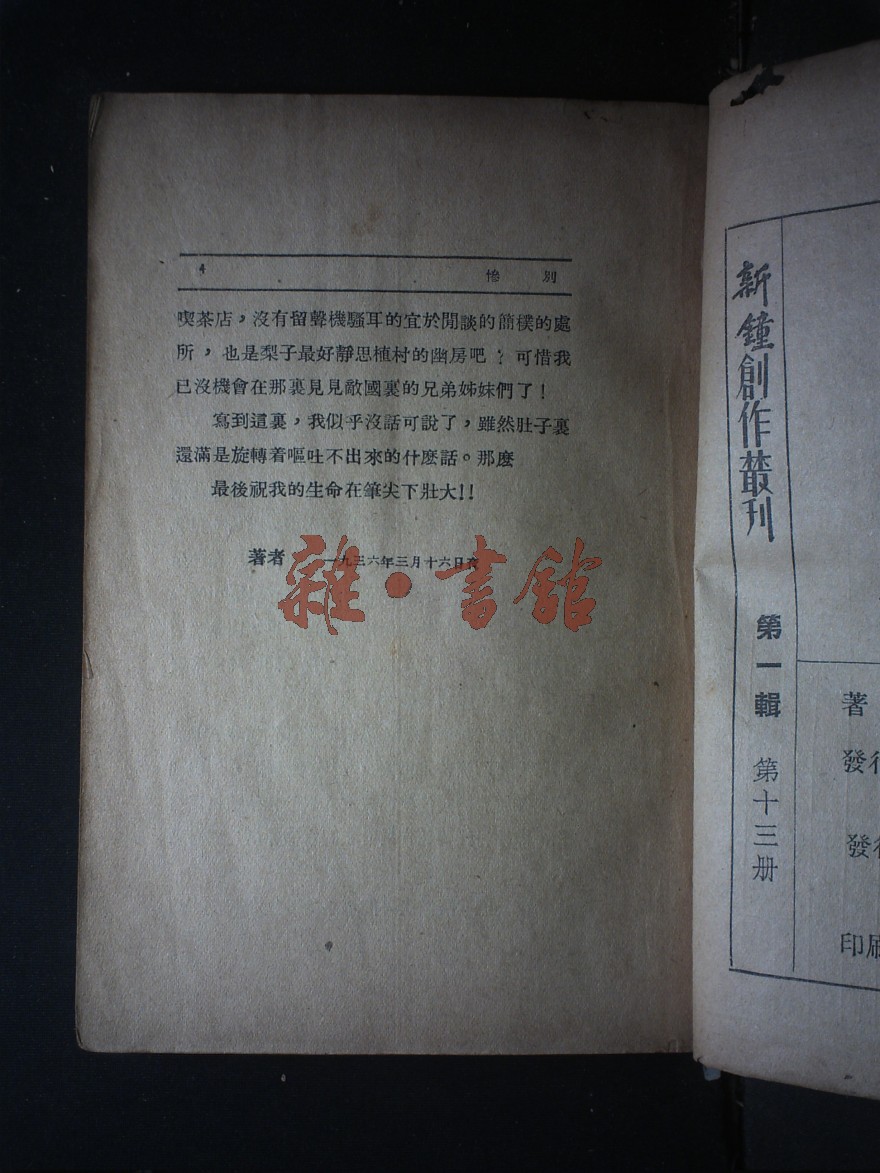 4 慘別
喫茶店，沒有留聲機騷耳的宜於閒談的簡樸的處
所，也是梨子最好靜思植村的幽房吧？可惜我
已沒機會在那裏見見敵國裏的兄弟姊妹們了！
寫到這裏，我似乎沒話可說了，雖然肚子裏
還滿是旋轉着嘔吐不出來的什麽話。那麽
最後祝我的生命在筆尖下壯大！！
著者 一九三六年三月十六日夜
雜・書館
新鐘創作叢刊
第一輯 第十三册
著
發行
發行
印刷